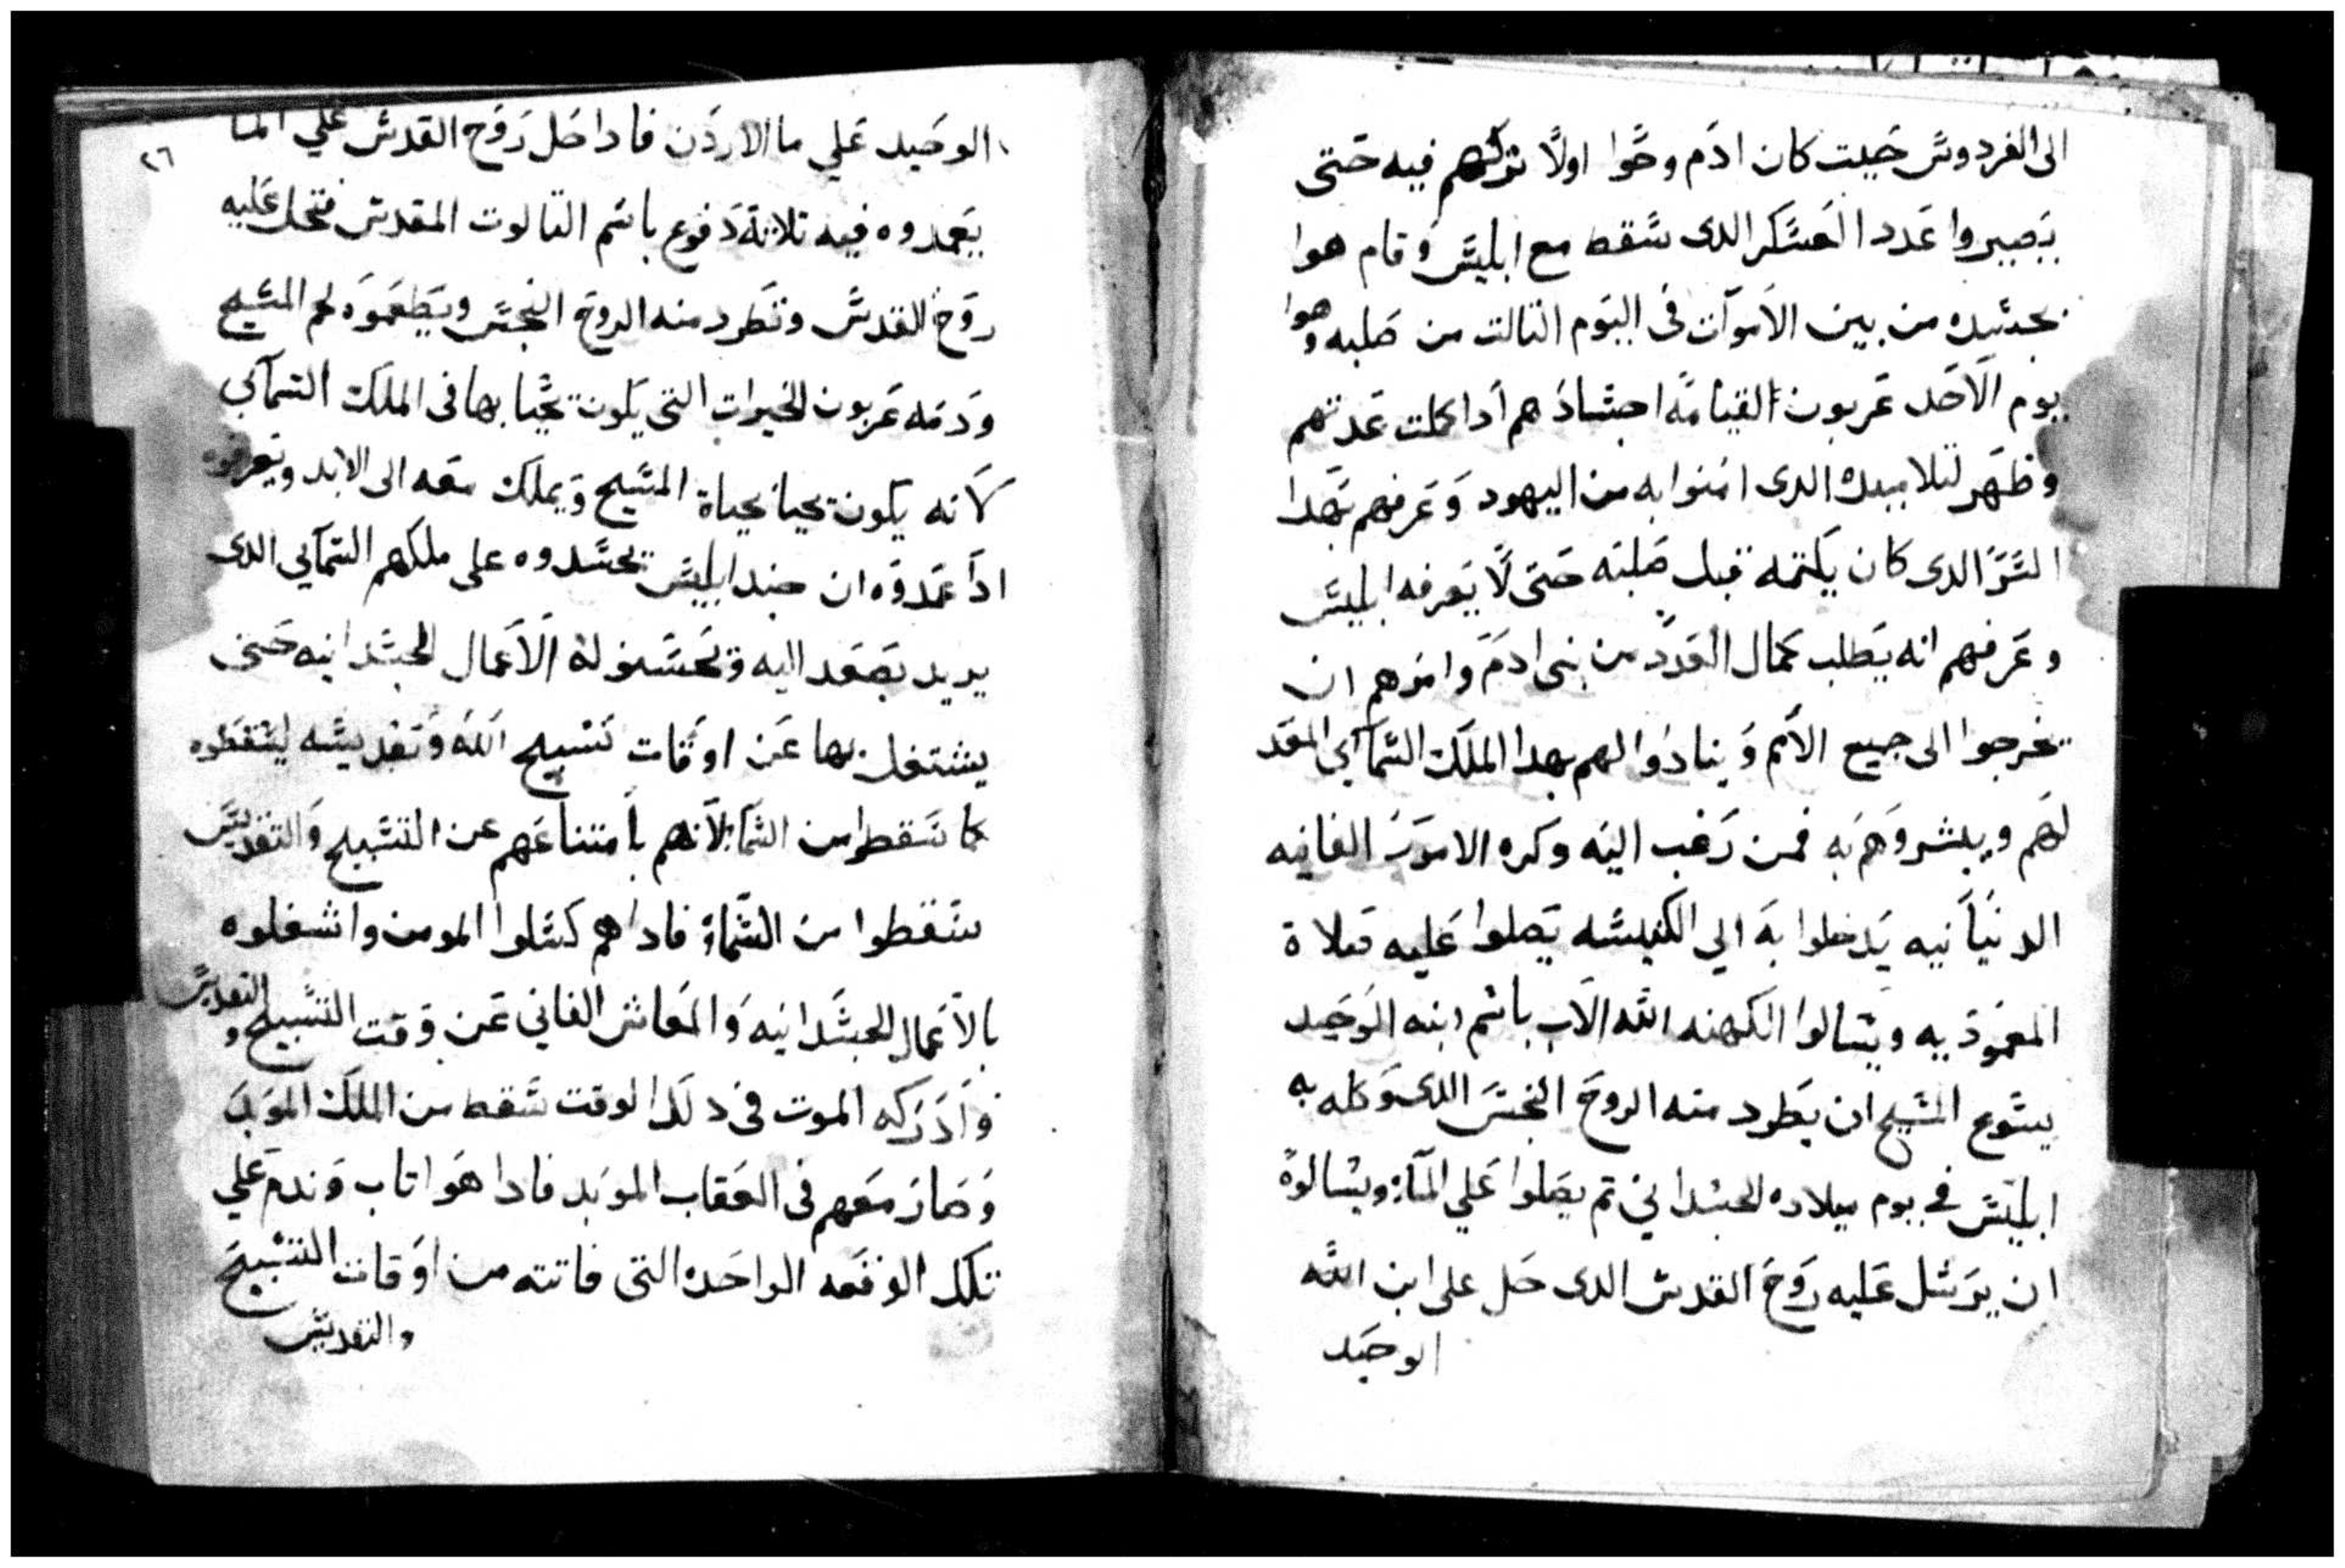 الى الفردوس حيت كان ادم وحوا اولاً تركهم فيه حتى
يصيروا عدد العسكر الدى سقط مع ابليس وقام هوا
بجسده من بين الأموات فى اليوم التالت من صلبه وهوا
يوم الاحد عربون القيامة اجسادهم ادا كملت عدتهم
وظهر لتلاميده الدى امنوا به من اليهود وعرفهم بهدا
السر الدى كان يكتمه قبل صلبه حتى لا يعرفه ابليس
وعرفهم انه يطلب كمال العدد من بنى ادم وامرهم ان
يخرجوا الى جميع الأمم وينادوا لهم بهدا الملك السمآئي المعد
لهم ويبشروهم به فمن رغب اليه وكره الامور الفانيه
الدنيانيه يدخلوا به الي الكنيسه يصلوا عليه صلاة
المعموديه ويسالوا الكهنه الله الاب باسم ابنه الوحيد
يسوع المسيح ان يطرد منه الروح النجس الدى وكله به
ابليس في يوم ميلاده الجسداني تم يصلوا علي المآء ويسالوة
ان يرسل عليه روح القدس الدى حل على ابن الله
الوحيد
٢٦
الوحيد علي ما الاردن فادا حل روح القدس علي الما
يعمدوه فيه تلاتة دفوع باسم التالوت المقدس فتحل عليه
روح القدس وتطرد منه الروح النجس ويطعموه لحم المسيح
ودمه عربون الخيرات التى يكون يحيا بها فى الملك السمآئي
لانه يكون يحيا بحياة المسيح ويملك معه الى الابد ويعرفوه
ادا عمدوه ان جند ابليس تحسدوه على ملكهم السمآيي الدى
يريد يصعد اليه وتحسنو له الاعمال الجسدانيه حتى
يشتغل بها عن اوقات تسبيح الله وتقديسه ليسقطوه
كما سقطوا من السما لانهم بامتناعهم عن التسبيح والتقديس
سقطوا من السماء فاداهم كسلوا المومن واشغلوه
بالاعمال الجسدانيه والمعاش الفاني عن وقت التسبيح والتقديس
وادركه الموت فى دلك الوقت سقط من الملك الموبد
وصار معهم فى العقاب الموبد فادا هوا تاب وندم علي
تلك الوقعه الواحده التى فاتته من اوقات التسبيح
والتقديس